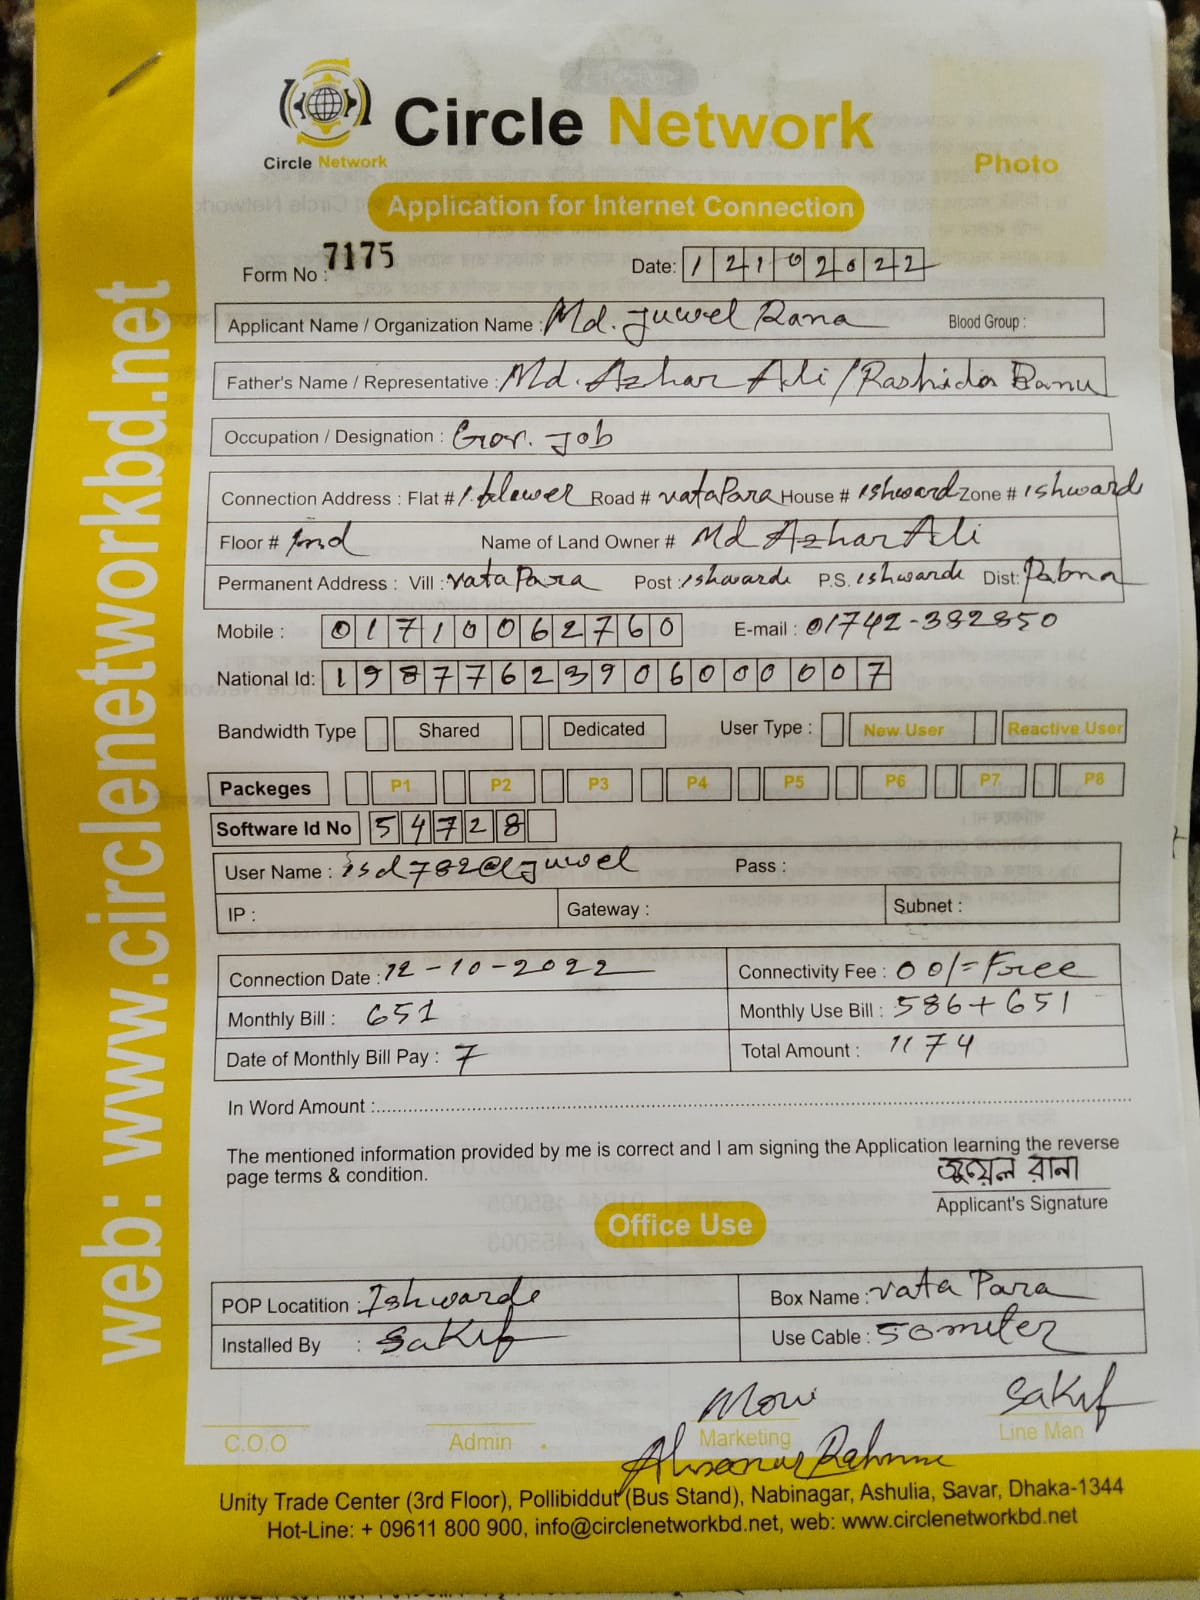 web: www.circlenetworkbd.net
Circle Network
Circle Network
Photo
Application for Internet Connection
Form No : 7175 Date: 12102022
Applicant Name / Organization Name : Md. Juwel Rana Blood Group :
Father's Name / Representative : Md. Azhar Ali / Rashida Banu
Occupation / Designation : Gov. Job
Connection Address : Flat # Road # vataPara House # ishwardi Zone # ishwardi
Floor # Name of Land Owner # Md Azhar Ali
Permanent Address : Vill : vata Para Post : ishwardi P.S. ishwardi Dist: Pabna
Mobile : 01710062760 E-mail : 01742-382850
National Id: 19877623906000007
Bandwidth Type Shared Dedicated User Type : New User Reactive User
Packeges P1 P2 P3 P4 P5 P6 P7 P8
Software Id No 54728
User Name : isd782@juwel Pass :
IP : Gateway : Subnet :
Connection Date : 12-10-2022 Connectivity Fee : 00/= Free
Monthly Bill : 651 Monthly Use Bill : 586+651
Date of Monthly Bill Pay : 7 Total Amount : 1174
In Word Amount :
The mentioned information provided by me is correct and I am signing the Application learning the reverse
page terms & condition.
জুয়েল রানা
Applicant's Signature
Office Use
POP Locatition : Ishwarde Box Name : vata Para
Installed By : Sakif Use Cable : 50 miter
Sakif
C.O.O Admin Marketing Line Man
Unity Trade Center (3rd Floor), Pollibiddut (Bus Stand), Nabinagar, Ashulia, Savar, Dhaka-1344
Hot-Line: + 09611 800 900, info@circlenetworkbd.net, web: www.circlenetworkbd.net